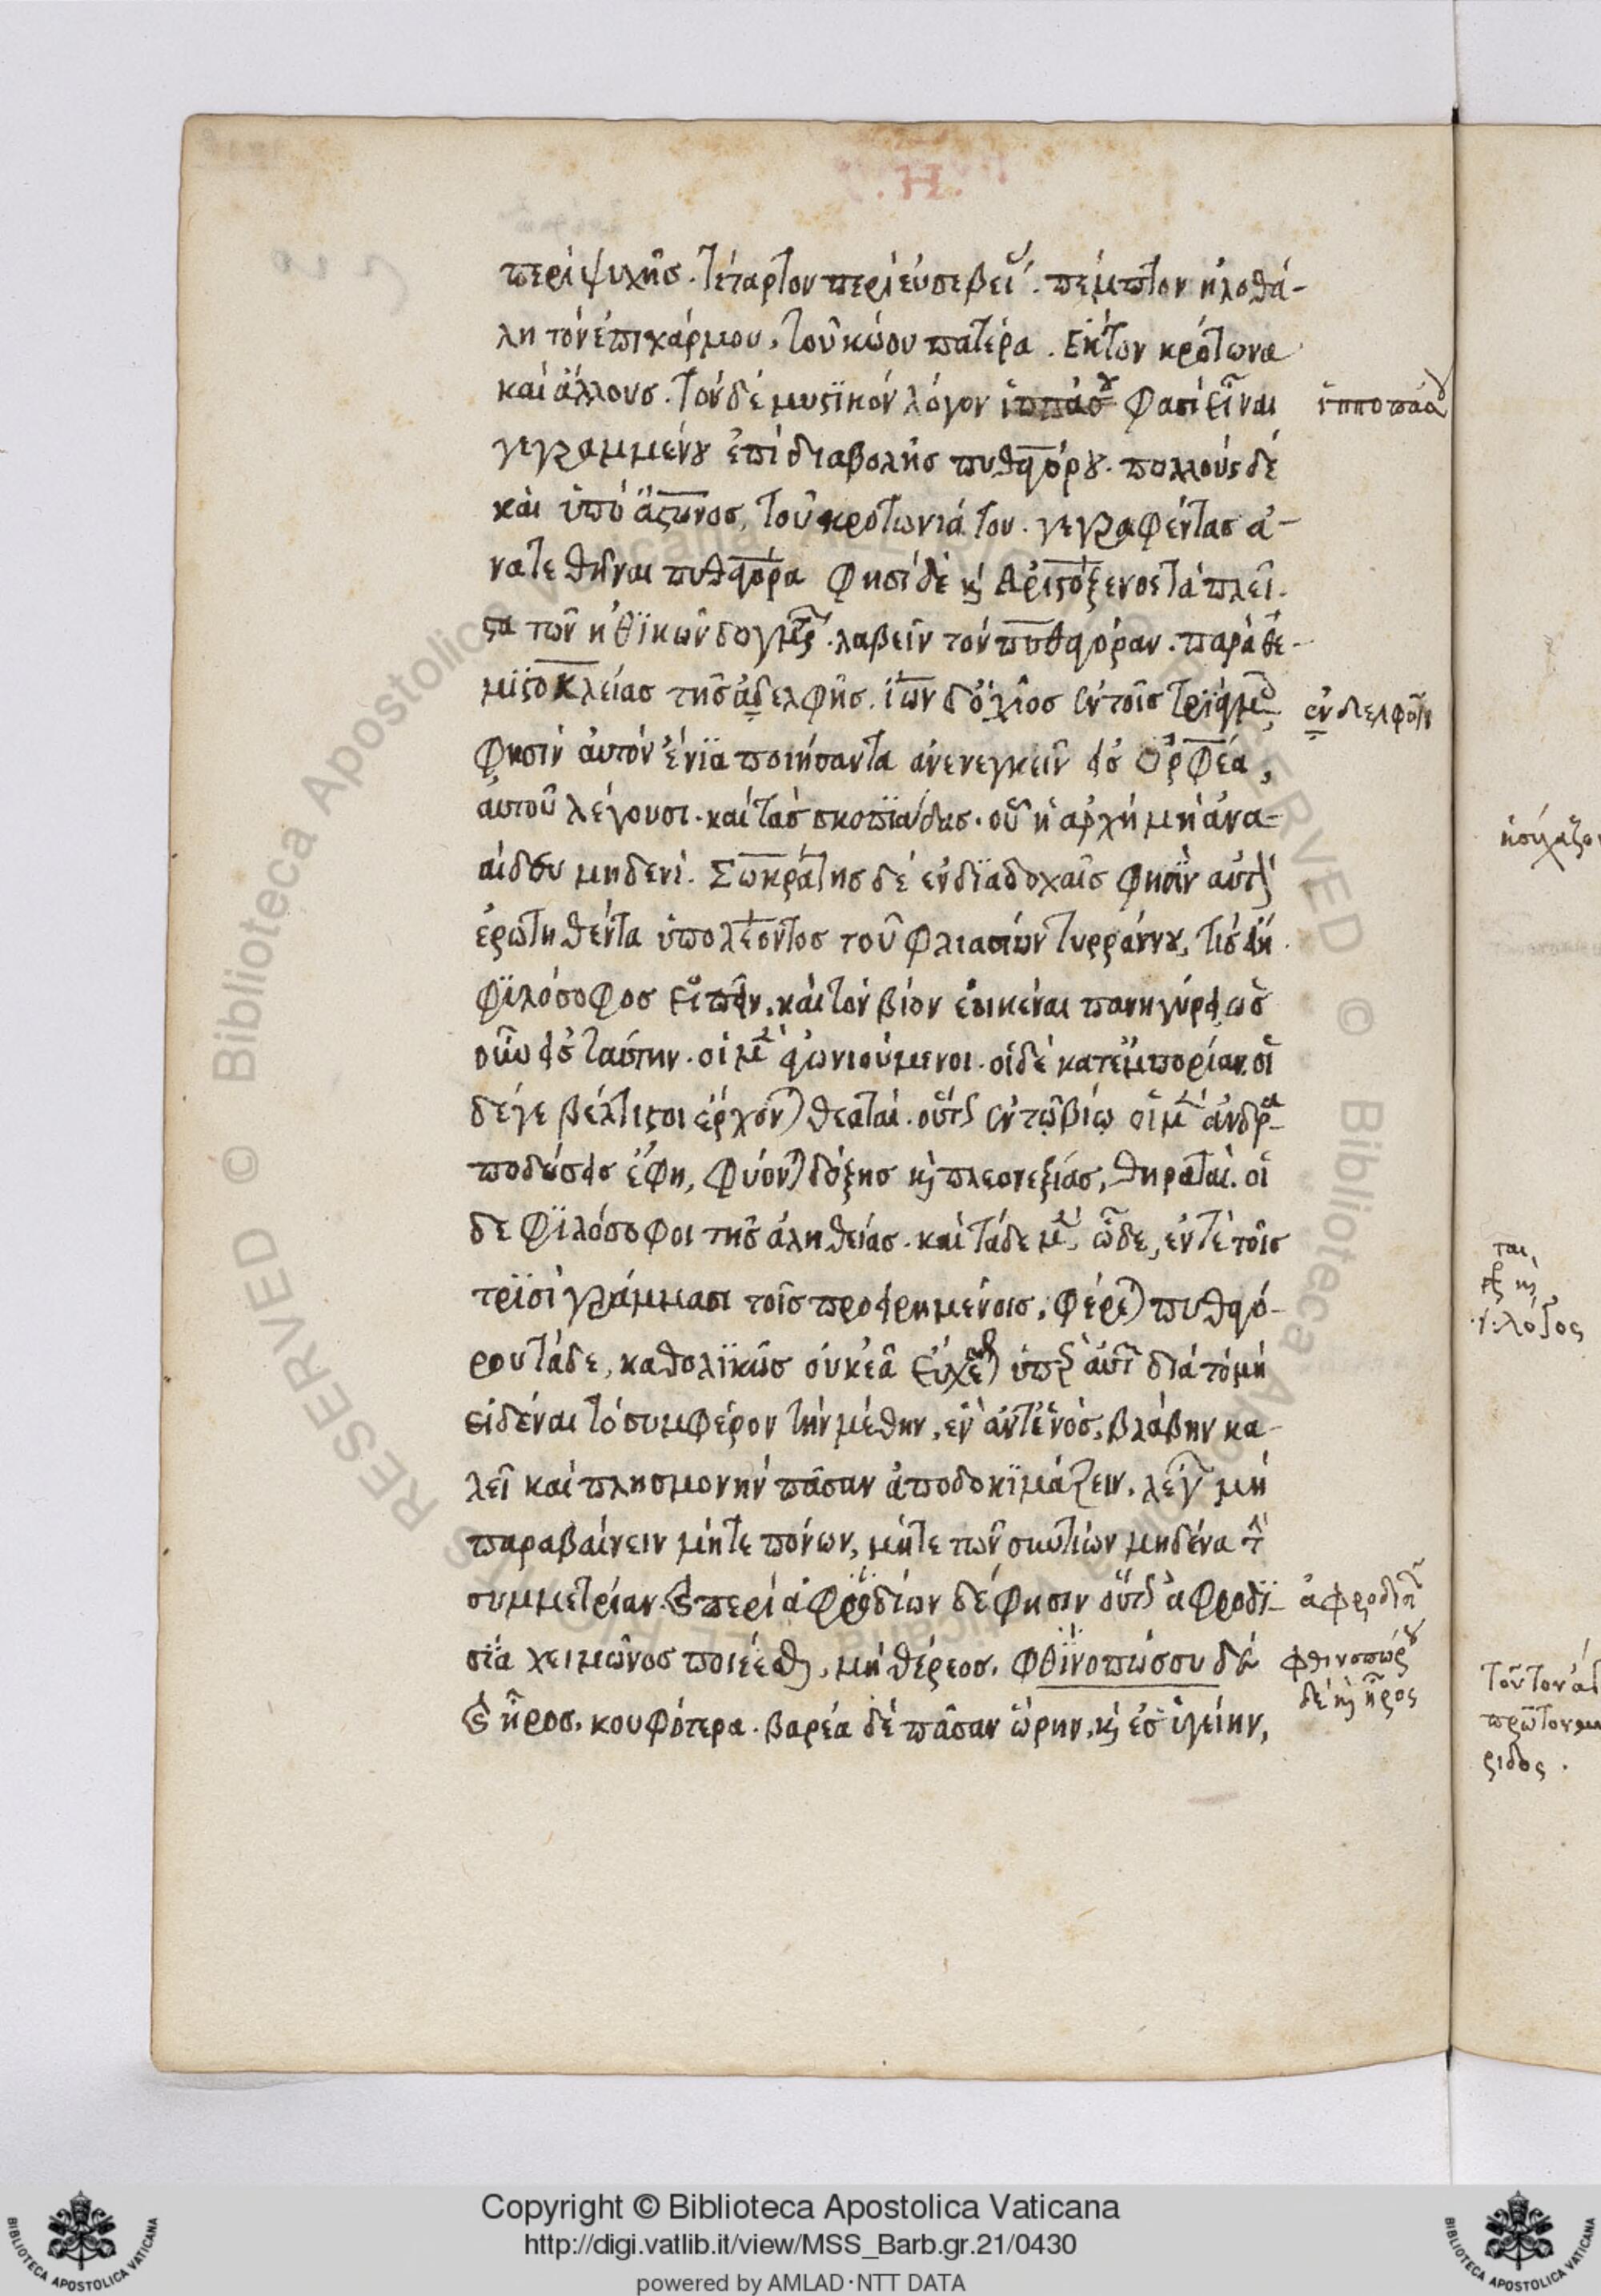 .Η.
περὶ ψυχῆς. τέταρτον περὶ εὐσεβεί. πέμπτον ἠλοθά-
λη τὸν ἐπιχάρμου, τοῦ κώου πατέρα. ἕκτον κρότωνα
καὶ ἄλλους. τὸν δὲ μυστικὸν λόγον ἱππάσου φασὶ εἶναι
γεγραμμένου ἐπὶ διαβολῆς πυθαγόρου. πολλοὺς δὲ
καὶ ὑπὸ ἄστωνος, τοῦ κροτωνιάτου. γεγραφέντας ἀ-
νατεθῆναι πυθαγόρα φησὶ δὲ καὶ ἀριστόξενος τὰ πλεῖ-
στα τῶν ἠθικῶν δογμάτων. λαβεῖν τὸν πυθαγόραν. παρὰ θε-
μιστοκλείας τῆς ἀδελφῆς. ἴων δ' ὁ χῖος ἐν τοῖς τριαγμοῖς
φησὶν αὐτὸν ἔνια ποιήσαντα ἀνενεγκεῖν εἰς ὀρφέα,
αὐτοῦ λέγουσι. καὶ τὰς σκοπιάδας. οὗ ἡ ἀρχὴ μὴ ἀνα-
αίδευ μηδενί. Σωκράτης δὲ ἐν διαδοχαῖς φησὶν αὐτὸν
ἐρωτηθέντα ὑπὸ λέοντος τοῦ φλιασίων τυρράννου, τίς εἴη
φιλόσοφος εἰπεῖν. καὶ τὸν βίον ἐοικέναι πανηγύρει ὡς
οὖν εἰς ταύτην. οἱ μὲν ἀγωνιούμενοι. οἱ δὲ κατ' ἐμπορίαν. οἱ
δέ γε βέλτιστοι ἔρχονται θεαταί. οὕτως ἐν τῶ βίω οἱ μὲν ἀνδρα-
ποδώσεις ἔφη, φύονται δόξης καὶ πλεονεξίας, θηραταί. οἱ
δε φιλόσοφοι τῆς ἀληθείας. καὶ τάδε μὲν ὧδε, ἐν τὲ τοῖς
τρισὶ γράμμασι τοῖς προειρημένοις, φέρεται πυθαγό-
ρου τάδε, καθολικῶς οὐκ ἐᾶ εὔχεσθαι ὑπὲρ αὑτῶν διὰ τὸ μὴ
εἰδέναι τὸ συμφέρον τὴν μέθην, ἓν ἀνθ' ἑνὸς, βλάβην κα-
λεῖ καὶ πλησμονὴν πᾶσαν ἀποδοκιμάζειν, λέγων μὴ
παραβαίνειν μήτε πόνων, μήτε τῶν σιτίων μηδένα τὴν
συμμετρίαν. καὶ περὶ ἀφροδίων δέ φησιν οὕτως ἀφροδι-
σία χειμῶνος ποιέεσθαι, μὴ θέρεος. φθινοπώσου δὲ
καὶ ἦρος. κουφότερα. βαρέα δὲ πᾶσαν ὥρην, καὶ ἐς ὑγείην,
ἱπποπάσου
ἐν δελφοῖς
ἀφροδισίων
φθινοπώρου
δὲ καὶ ἦρος
ἡσυχάζον
ται,
τοῦτον
πρῶτον
ριδος.
Copyright © Biblioteca Apostolica Vaticana
http://digi.vatlib.it/view/MSS_Barb.gr.21/0430
powered by AMLAD·NTT DATA